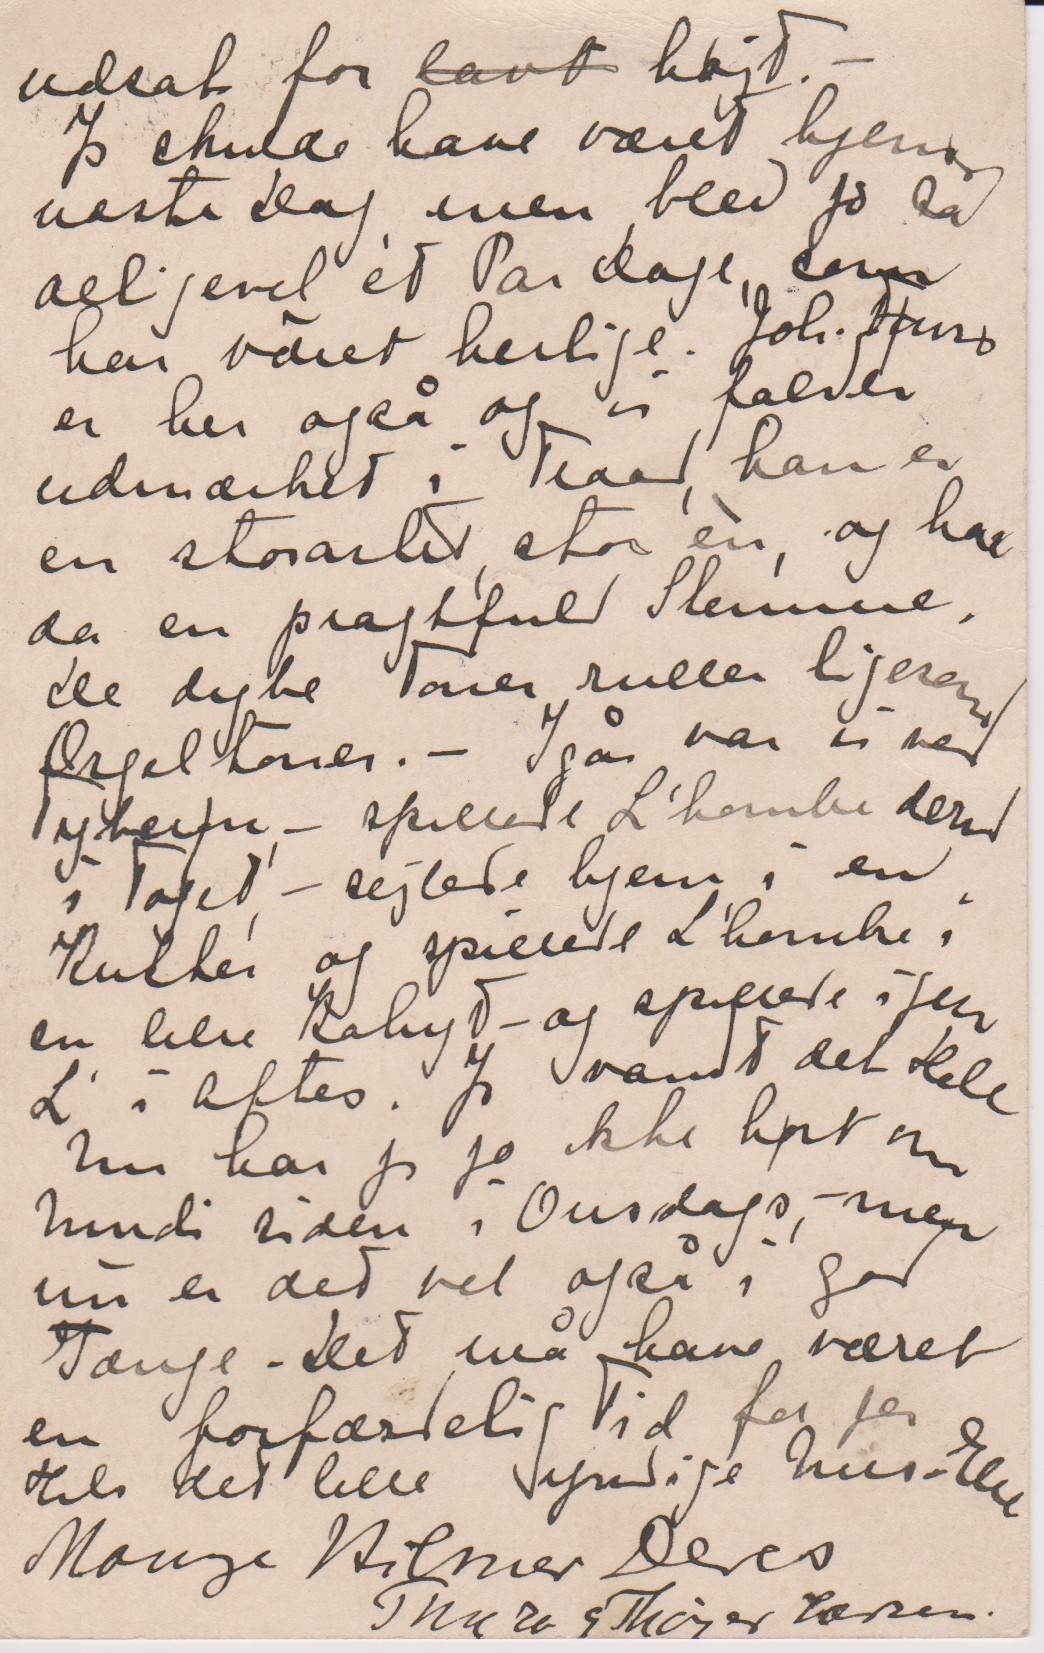 udsat for lavt højt. –
Jeg skulde have været hjem
næste Dag, men blev jo så
alligevel et Par Dage, som
har været herlige. Joh.
er her også og vi falder
udmærket i Traad, han er
en storartet, stor èn, og har
da en pragtfuld Stemme.
De dybe Toner ruller ligesom
Orgeltoner. – Igår var vi ved
– spillede L'hombre derud
i Toget, – sejlede hjem i en
Kutter og spillede L'hombre i
en lille Kahyt – og spillede igen
L' i Aftes. Jeg vandt det Hele
Nu har jeg jo ikke hørt om
siden i Onsdags, – men
nu er det vel også i god
Gænge – Det må have været
en forfærdelig Tid for jer
Hils det lille yndige Nus – Elle
Mange Hilsner Deres
Thyra & Thøger Larsen.